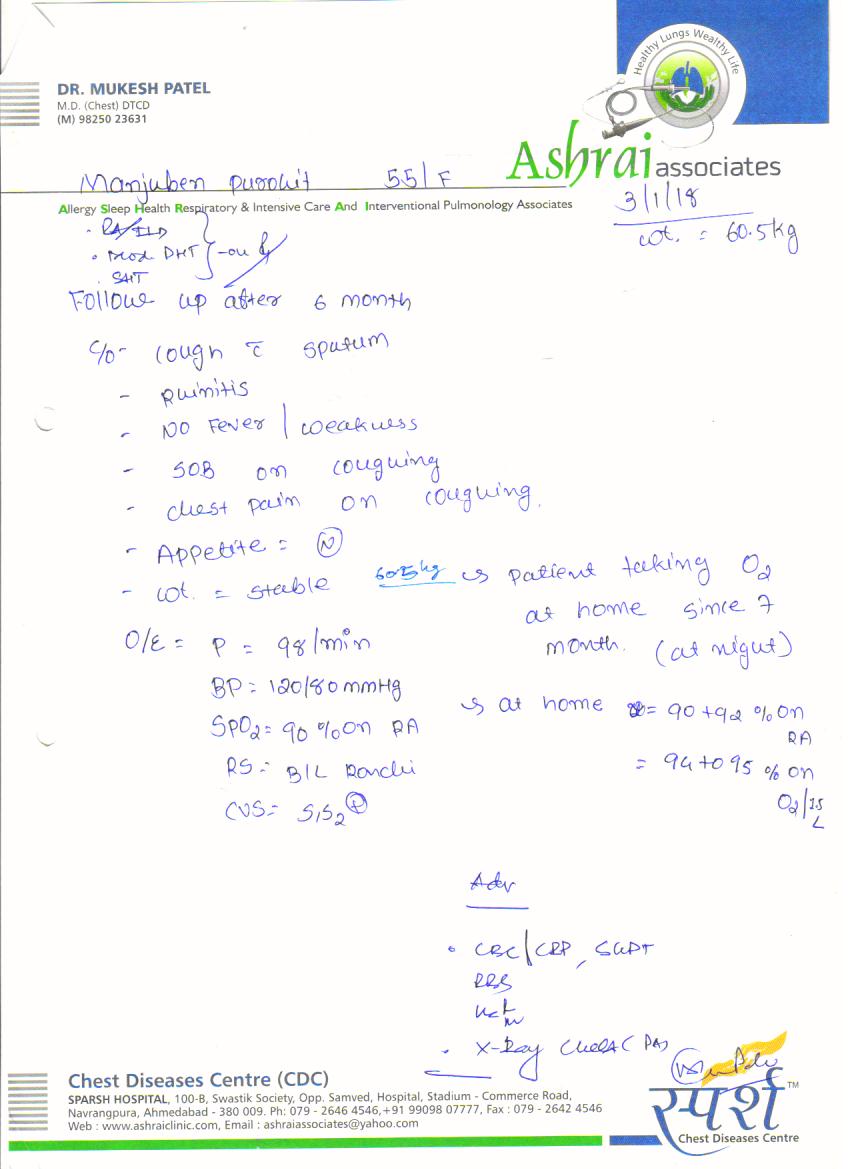 Healthy Lungs Wealthy Life
DR. MUKESH PATEL
M.D. (Chest) DTCD
(M) 98250 23631
Ashrai associates
Manjuben Purohit 55/F
Allergy Sleep Health Respiratory & Intensive Care And Interventional Pulmonology Associates
3/1/18
wt. = 60.5kg
• RA/ILD
• Mod DHT -on
• SHT
Follow up after 6 month
c/o- Cough c̄ sputum
- Rhinitis
- NO Fever / weakness
- SOB on coughing
- chest pain on coughing.
- Appetite = (N)
- wt. = stable 60.5kg
patient taking O2
at home since 7
month. (at night)
O/E = P = 98/min
BP = 120/80 mmHg
SPO2 = 90 % on RA
RS = B/L Ronchi
CVS = S1S2 (+)
at home = 90 to 92 % on
RA
= 94 to 95 % on
O2/1.5
L
Adv
• CBC/CRP, SGPT
RBS
• X-Ray Chest (PA)
Chest Diseases Centre (CDC)
SPARSH HOSPITAL, 100-B, Swastik Society, Opp. Samved, Hospital, Stadium - Commerce Road,
Navrangpura, Ahmedabad - 380 009. Ph: 079 - 2646 4546,+91 99098 07777, Fax : 079 - 2642 4546
Web : www.ashraiclinic.com, Email : ashraiassociates@yahoo.com
स्पर्श TM
Chest Diseases Centre